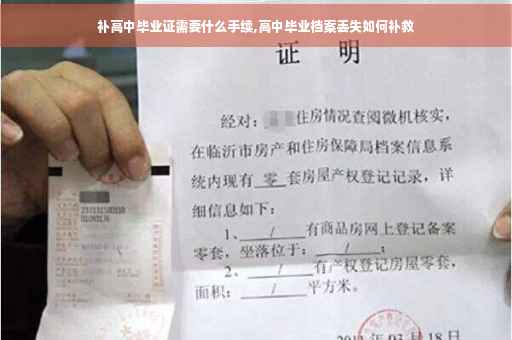 补高中毕业证需要什么手续,高中毕业档案丢失如何补救
证 明
经对: 住房情况查阅微机核实,
在临沂市房产和住房保障局档案信息系
统内现有 零 套房屋产权登记记录,详
细信息如下:
1、 / 有商品房网上登记备案
零套,坐落位于: / ;
2、 / 有产权登记房屋零套,
面积: / 平方米。